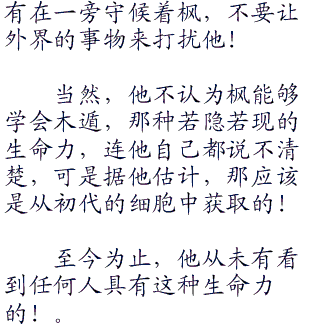 有在一旁守候着枫，不要让
外界的事物来打扰他！
当然，他不认为枫能够
学会木遁，那种若隐若现的
生命力，连他自己都说不清
楚，可是据他估计，那应该
是从初代的细胞中获取的！
至今为止，他从未有看
到任何人具有这种生命力
的！。